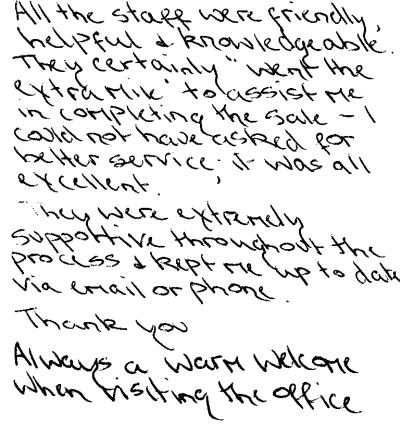 All the staff were friendly,
helpful & knowledgeable.
They certainly "went the
extra mile" to assist me
in completing the sale - I
could not have asked for
better service; it was all
excellent.
They were extremely
supportive throughout the
process & kept me up to date
via email or phone.
Thank you
Always a warm welcome
when visiting the office